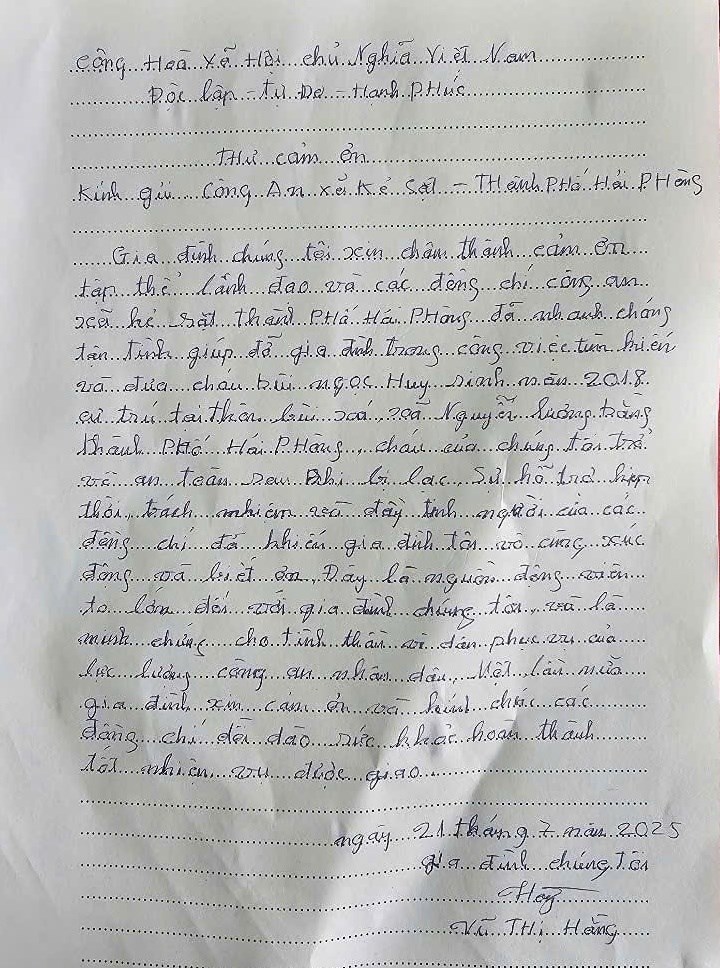 Cộng Hoà Xã Hội chủ Nghĩa Việt Nam
Độc lập - Tự Do - Hạnh Phúc
Thư cảm ơn
Kính gửi Công An xã Kẻ Sặt - Thành Phố Hải Phòng
Gia đình chúng tôi xin chân thành cảm ơn
tập thể lãnh đạo và các đồng chí công an
xã kẻ sặt thành Phố Hải Phòng đã nhanh chóng
tận tình giúp đỡ gia đình trong công việc tìm kiếm
và đưa cháu Bùi Ngọc Huy sinh năm 2018
cư trú tại thôn bùi xá, xã Nguyễn Lương Bằng
thành Phố Hải Phòng, cháu của chúng tôi trở
về an toàn sau khi bị lạc, Sự hỗ trợ kịp
thời, trách nhiệm và đầy tình người của các
đồng chí đã khiến gia đình tôi vô cùng xúc
động và biết ơn, Đây là nguồn động viên
to lớn đối với gia đình chúng tôi, và là
minh chứng cho tinh thần vì dân phục vụ của
lực lượng công an nhân dân, Một lần nữa
gia đình xin cảm ơn và kính chúc các
đồng chí dồi dào sức khỏe hoàn thành
tốt nhiệm vụ được giao
ngày 21 tháng 7 năm 2025
gia đình chúng tôi
Hằng
Vũ Thị Hằng